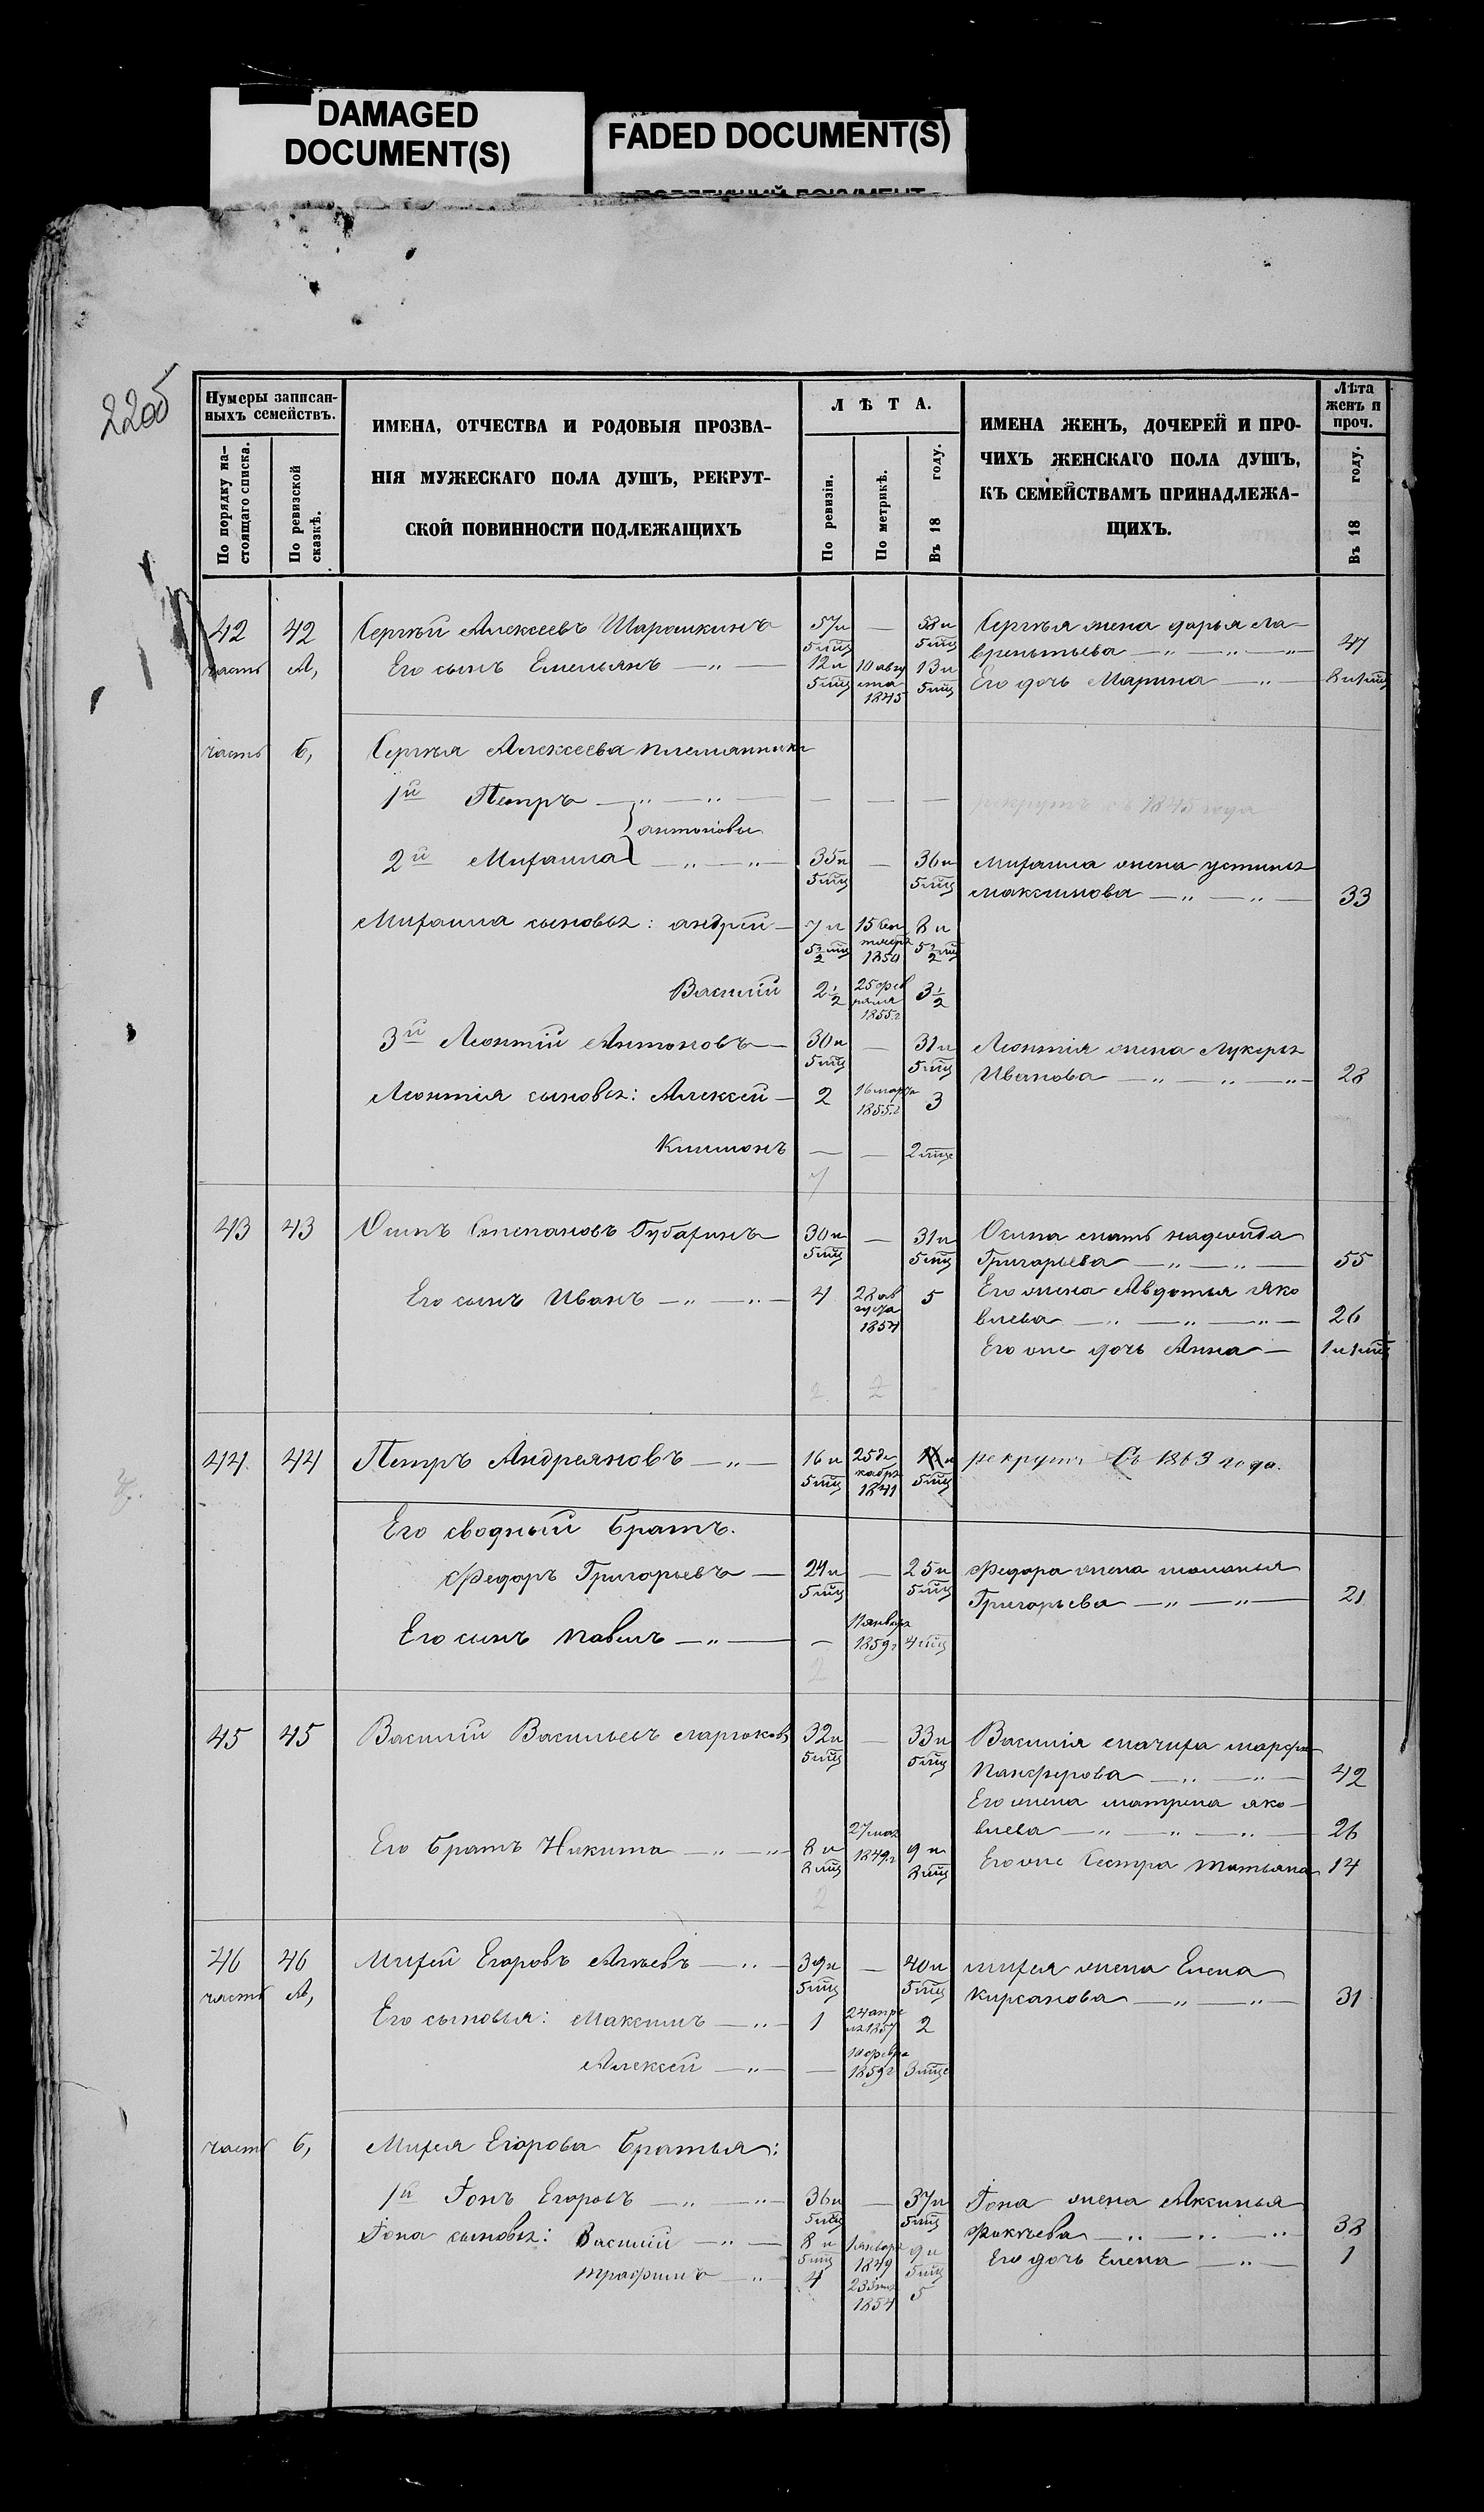 DAMAGED
DOCUMENT(S)
FADED DOCUMENT(S)
22об
Нумеры записан-
ныхъ семействъ.
По порядку на-
стоящаго списка.
По ревизской
сказкѣ.
ИМЕНА, ОТЧЕСТВА И РОДОВЫЯ ПРОЗВА-
НІЯ МУЖЕСКАГО ПОЛА ДУШЪ, РЕКРУТ-
СКОЙ ПОВИННОСТИ ПОДЛЕЖАЩИХЪ
ЛѢТА.
По ревизіи.
По метрикѣ.
Въ 18 году.
ИМЕНА ЖЕНЪ, ДОЧЕРЕЙ И ПРО-
ЧИХЪ ЖЕНСКАГО ПОЛА ДУШЪ,
КЪ СЕМЕЙСТВАМЪ ПРИНАДЛЕЖА-
ЩИХЪ.
Лѣта
женъ и
проч.
Въ 18 году.
42 42 Сергѣй Алексеевъ Шарашкинъ 57 и 5 мц — 58 и 5 мц Сергѣя жена дарья ла-
врентьева — „ — „ — „ — 47
часть А, Его сынъ Емельянъ — „ — 12 и 5 мц 10 авгу ста 1845 13 и 5 мц Его дочь Марина — „ — 8 и 1 мц
часть б, Сергѣя Алексеева племянники
1й Петръ — „ — „ — — — — рекрутъ съ 1845 года
антоновы
2й Михаила — „ — „ — 35 и 5 мц — 36 и 5 мц Михаила жена устинья
максимова — „ — „ — 33
Михаила сыновья: андрей — 7 и 5 1/2 мц 15 1850 8 и 5 1/2 мц
Василий 2 1/2 25 фев раля 1855 г 3 1/2
3й Леонтій Антоновъ — 30 и 5 мц — 31 и 5 мц Леонтія жена Лукерья
Иванова — „ — „ — „ — 28
Леонтія сыновья: Алексей — 2 16 марта 1855 г 3
Климонъ — — 2 мце
7
43 43 Осипъ Степановъ Губаринъ 30 и 5 мц — 31 и 5 мц Осипа мать надежда
Григорьева — „ — „ — 55
Его сынъ Иванъ — „ — „ — 4 28 ав густа 1854 5 Его жена Авдотья яко
влева — „ — „ — „ — 26
Его же дочь Анна — 1 и 1 мц
2 2
44 44 Петръ Андреяновъ — „ — 16 и 5 мц 25 де кабря 1841 5 мц рекрутъ Съ 1863 года.
Его сводный братъ.
Федоръ Григорьевъ — 24 и 5 мц — 25 и 5 мц Федора жена маланья
Григорьева — „ — „ — 21
Его сынъ павелъ — „ — — января 1859 г 4 мц
2
45 45 Василий Васильевъ 32 и 5 мц — 33 и 5 мц Василія мачиха марфа
Панферова — „ — „ — 42
Его жена матрена яко-
влева — „ — „ — „ — 26
Его братъ Никита — „ — „ 8 и 2 мц 27 мая 1849 г 9 и 2 мц Его же Сестра татьяна 14
2
46 46 Михей Егоровъ — „ — 39 и 5 мц — 40 и 5 мц михея жена Елена
Кирсанова — „ — „ — 31
часть А, Его сыновья: Максимъ — „ — 1 24 апре ля 1857 2
Алексей — „ — — 10 февра 1859 г 3 мце
часть б, Михея Егорова братья:
1й Іонъ Егоровъ — „ — „ — 36 и 5 мц — 37 и 5 мц Іона жена Аксинья
Фокѣева — „ — „ — „ 38
Іона сыновья: Василий — „ — 8 и 5 мц 1 января 1849 9 и 5 мц Его дочь Елена — „ — 1
трафимъ — „ 4 23 1854 5